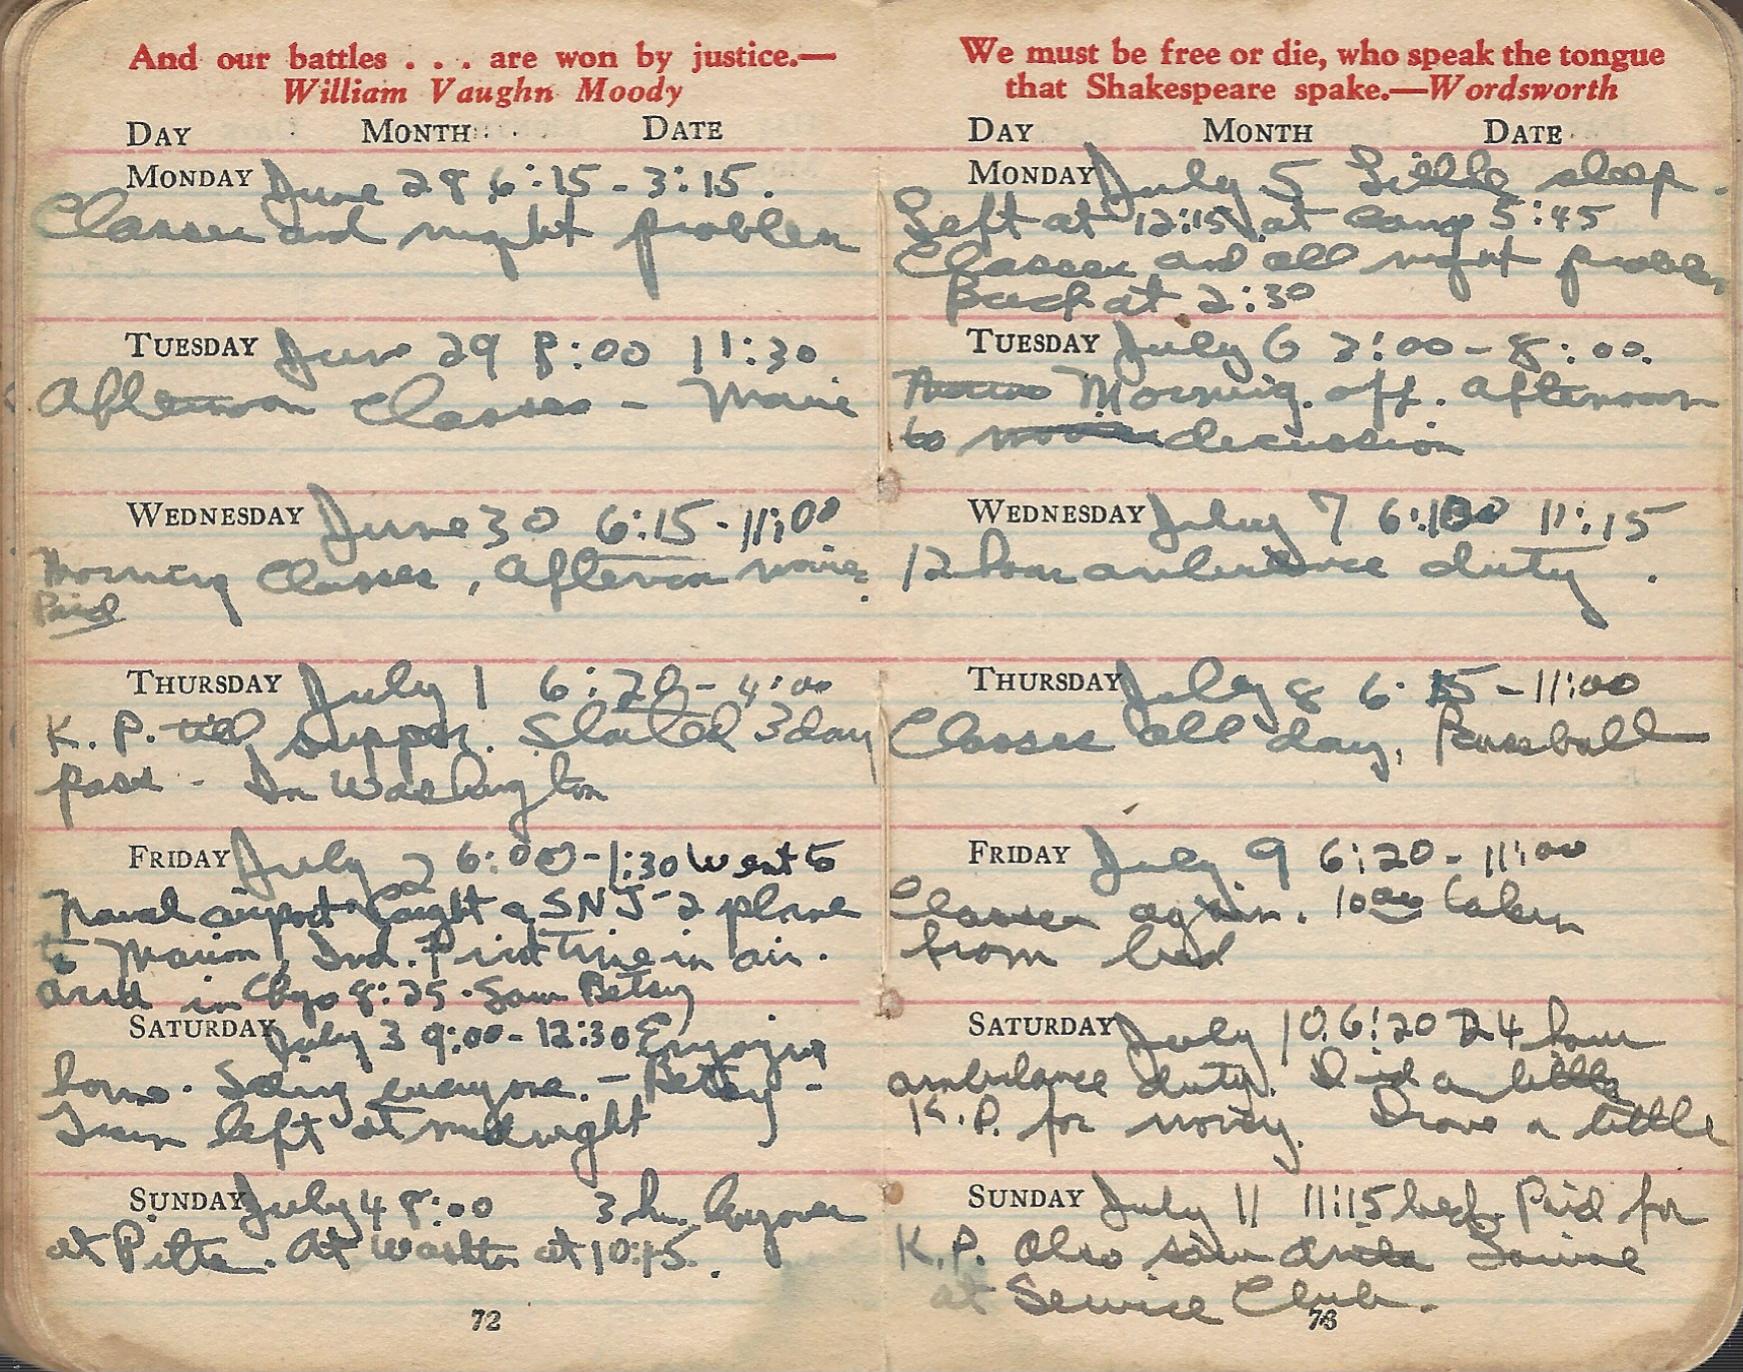 And our battles . . . are won by justice.—
William Vaughn Moody
DAY MONTH DATE
MONDAY June 28 6:15 - 3:15.
Classes and night problem
TUESDAY June 29 8:00 11:30
Afternoon Classes - Movie
WEDNESDAY June 30 6:15 - 11:00
Morning Classes, Afternoon movie.
Paid
THURSDAY July 1 6:20 - 4:00
K. P. till supper. Started 3 day
pass - In Washington
FRIDAY July 2 6:00 - 1:30 Went to
Naval airport Caught a SNJ-2 plane
to Marion, Ind. First time in air.
arrd in Chgo 8:25. Saw Betsy
SATURDAY July 3 9:00 - 12:30 Enjoying
home. Seeing everyone. - Betsy -
Train left at midnight
SUNDAY July 4 8:00 3 hr. layover
at Pitts. At Washtn at 10:45.
72
We must be free or die, who speak the tongue
that Shakespeare spake.—Wordsworth
DAY MONTH DATE
MONDAY July 5 Little sleep.
Left at 12:15 at camp 5:45
Classes and all night problem
Back at 2:30
TUESDAY July 6 2:00 - 8:00.
Morning off. Afternoon
to decussion
WEDNESDAY July 7 11:15
12 hour ambulance duty.
THURSDAY July 8 6:15 - 11:00
Classes all day, Baseball
FRIDAY July 9 6:20 - 11:00
Classes again. taken
from bed
SATURDAY July 10 6:20 24 hour
ambulance duty. Did a little
K.P. for money. Drove a little
SUNDAY July 11 11:15 bed. Paid for
K.P. Also saw
at Service Club.
73